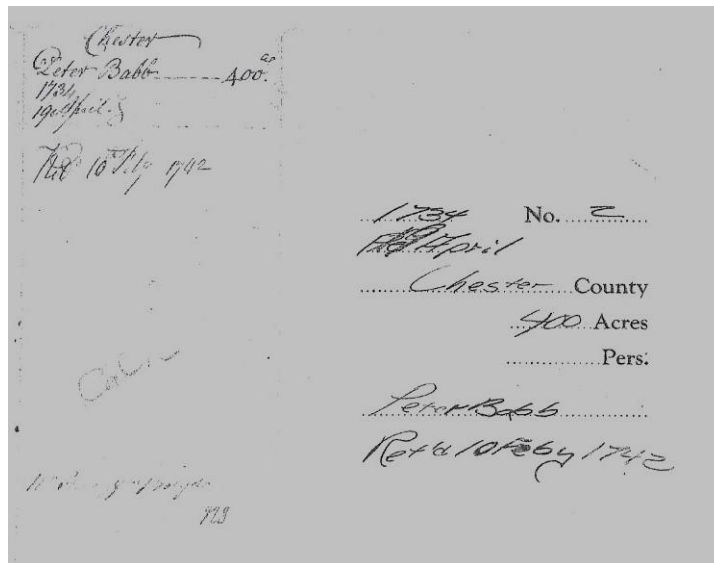 Chester
Peter Babb 400. as
1734
19 April
10th Feby 1742
Caln
923
1734 No. 2
19 April
Chester County
400 Acres
Pers:
Peter Babb
Ret'd 10 Feby 1742